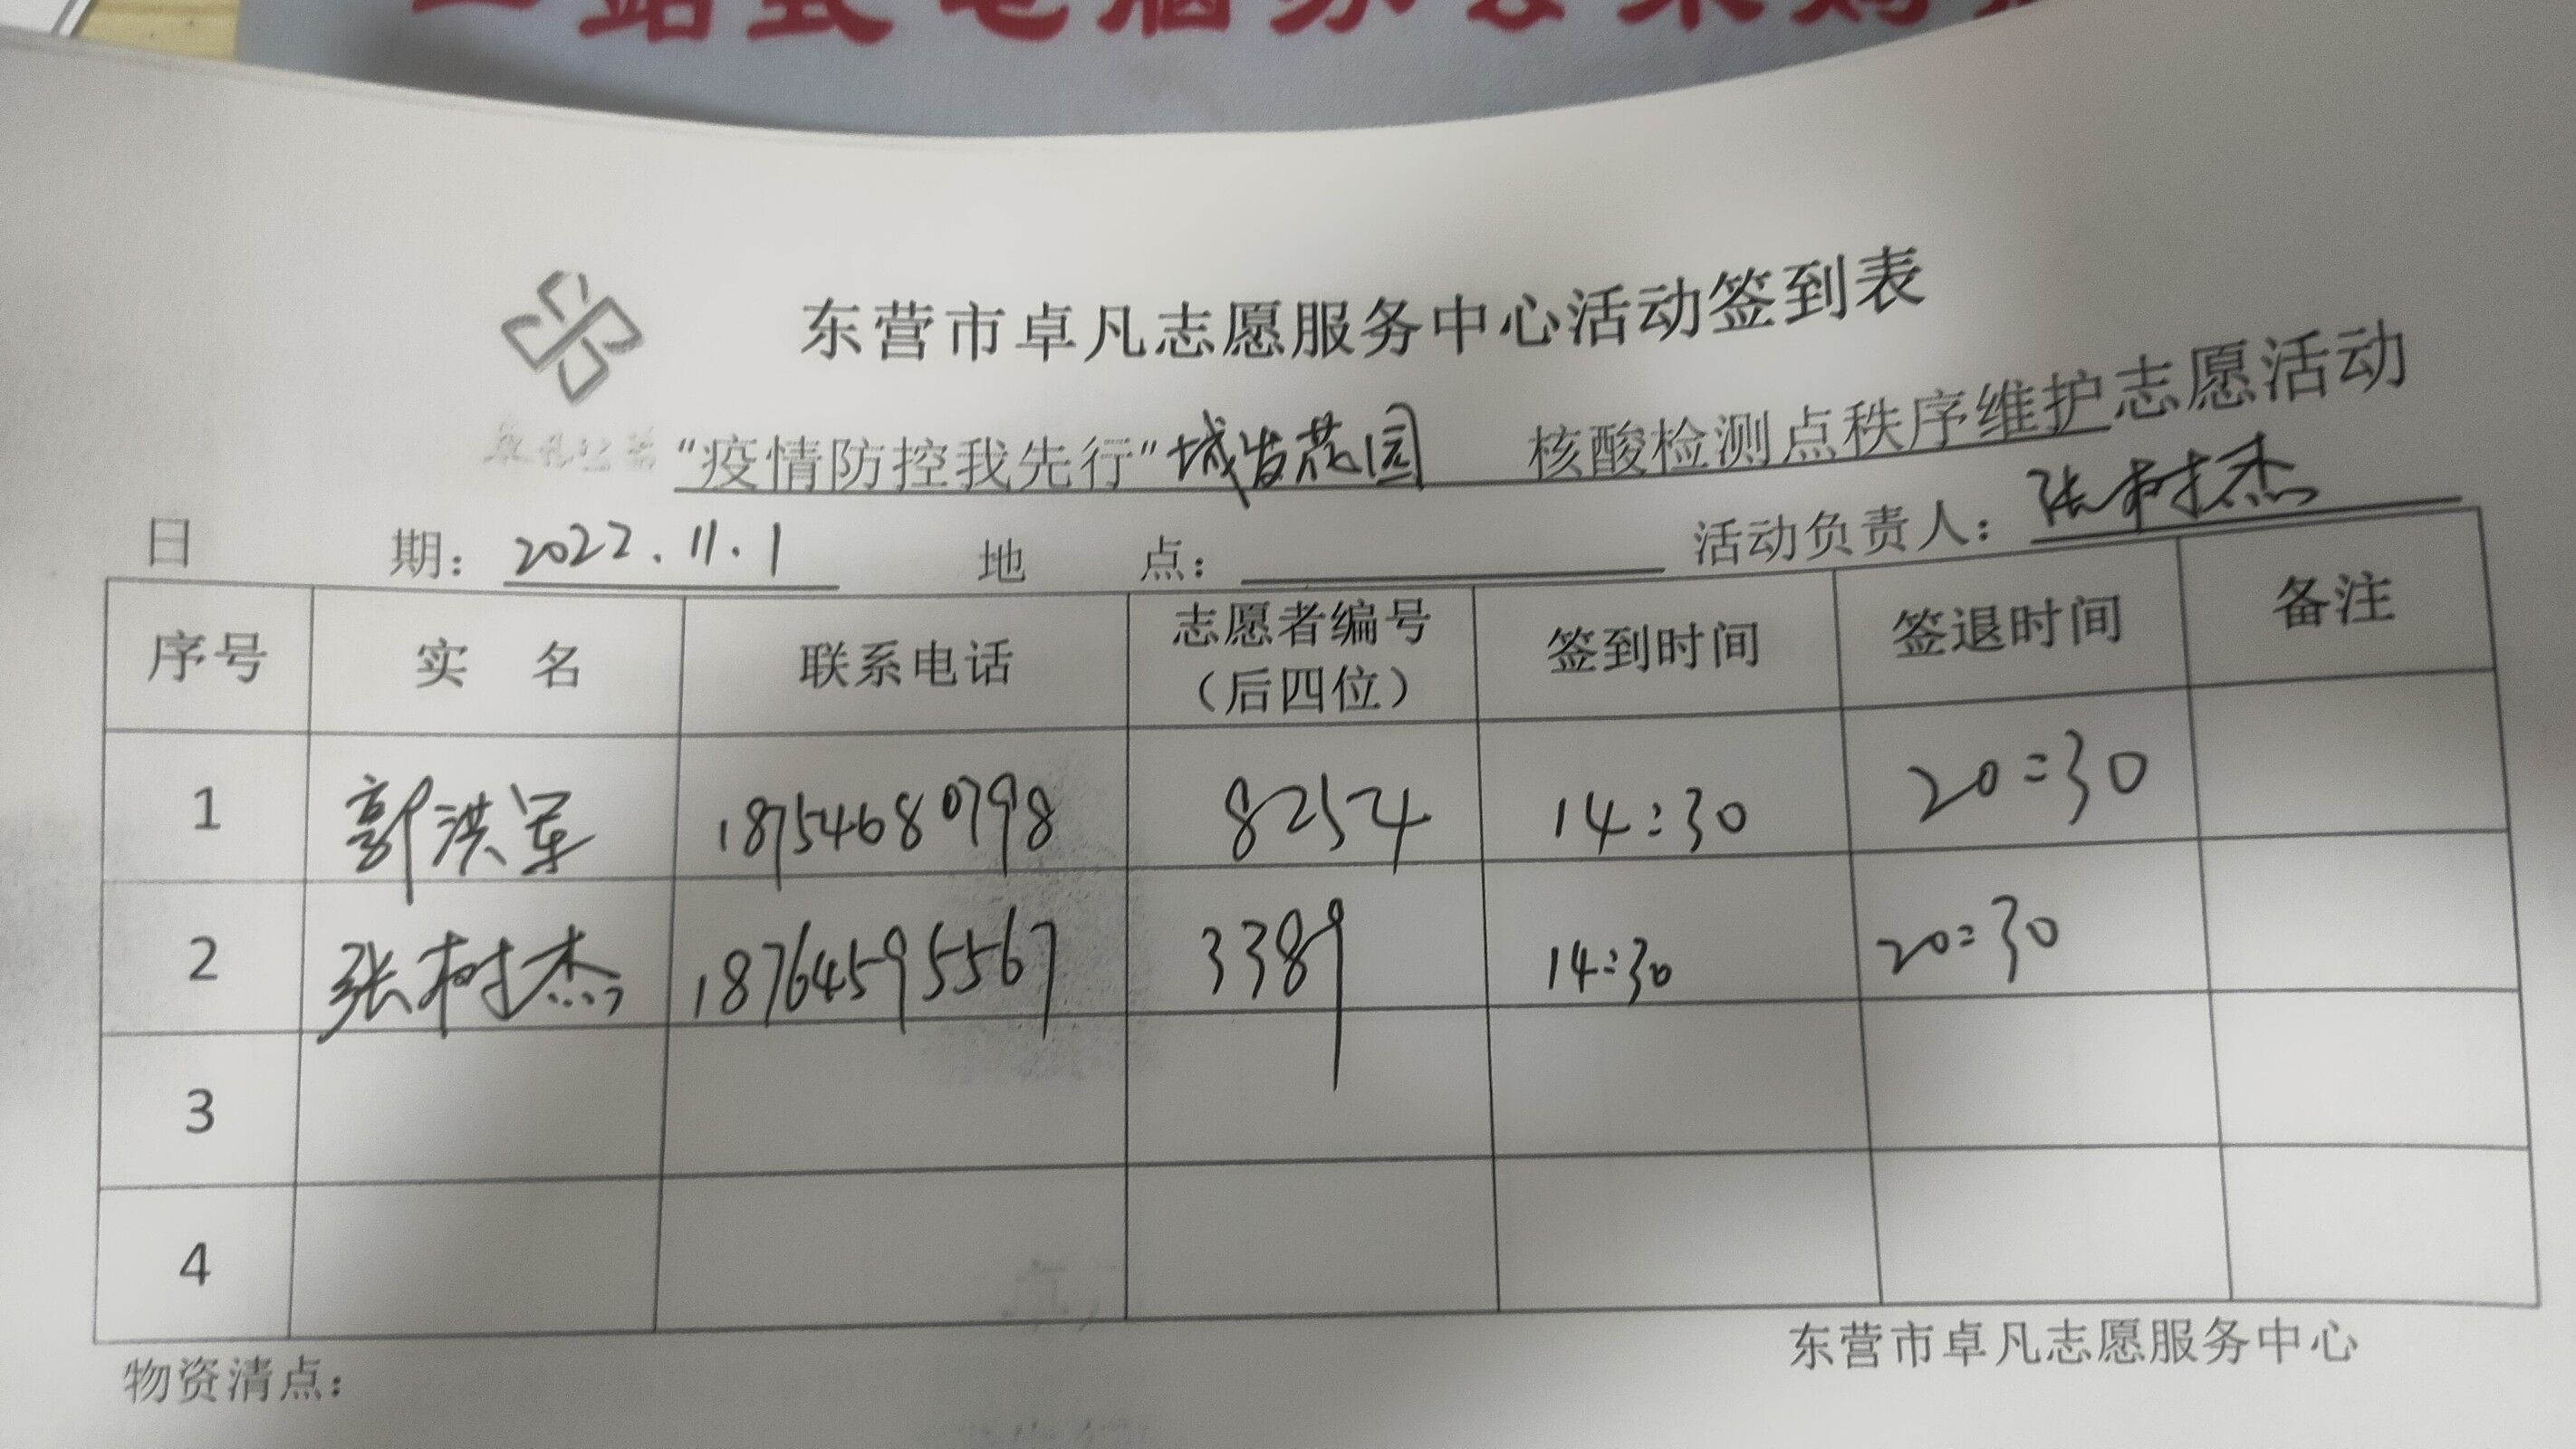 一站式电脑办公采购
东营市卓凡志愿服务中心活动签到表
卓凡公益
“疫情防控我先行”城发花园 核酸检测点秩序维护志愿活动
日 期：2022.11.1 地 点： 活动负责人：张树杰
序号 实 名 联系电话 志愿者编号（后四位） 签到时间 签退时间 备注
1 郭洪军 18754680798 8254 14:30 20:30
2 张树杰 18764595567 3389 14:30 20:30
3
4
物资清点：
东营市卓凡志愿服务中心